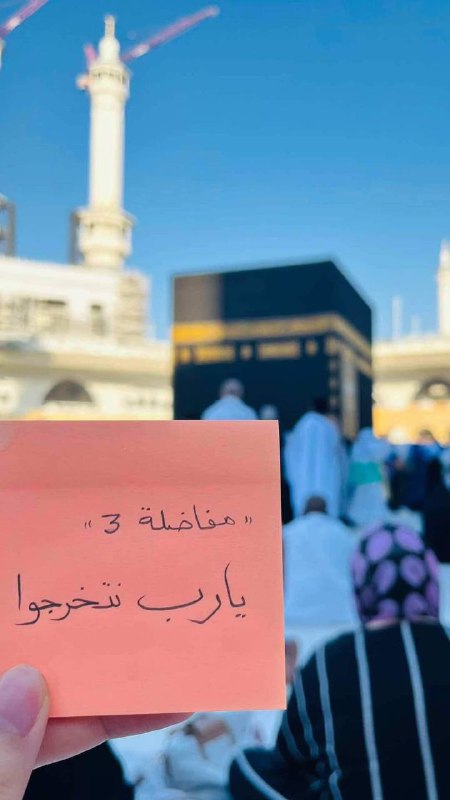 «مفاضلة 3»
يارب نتخرجوا